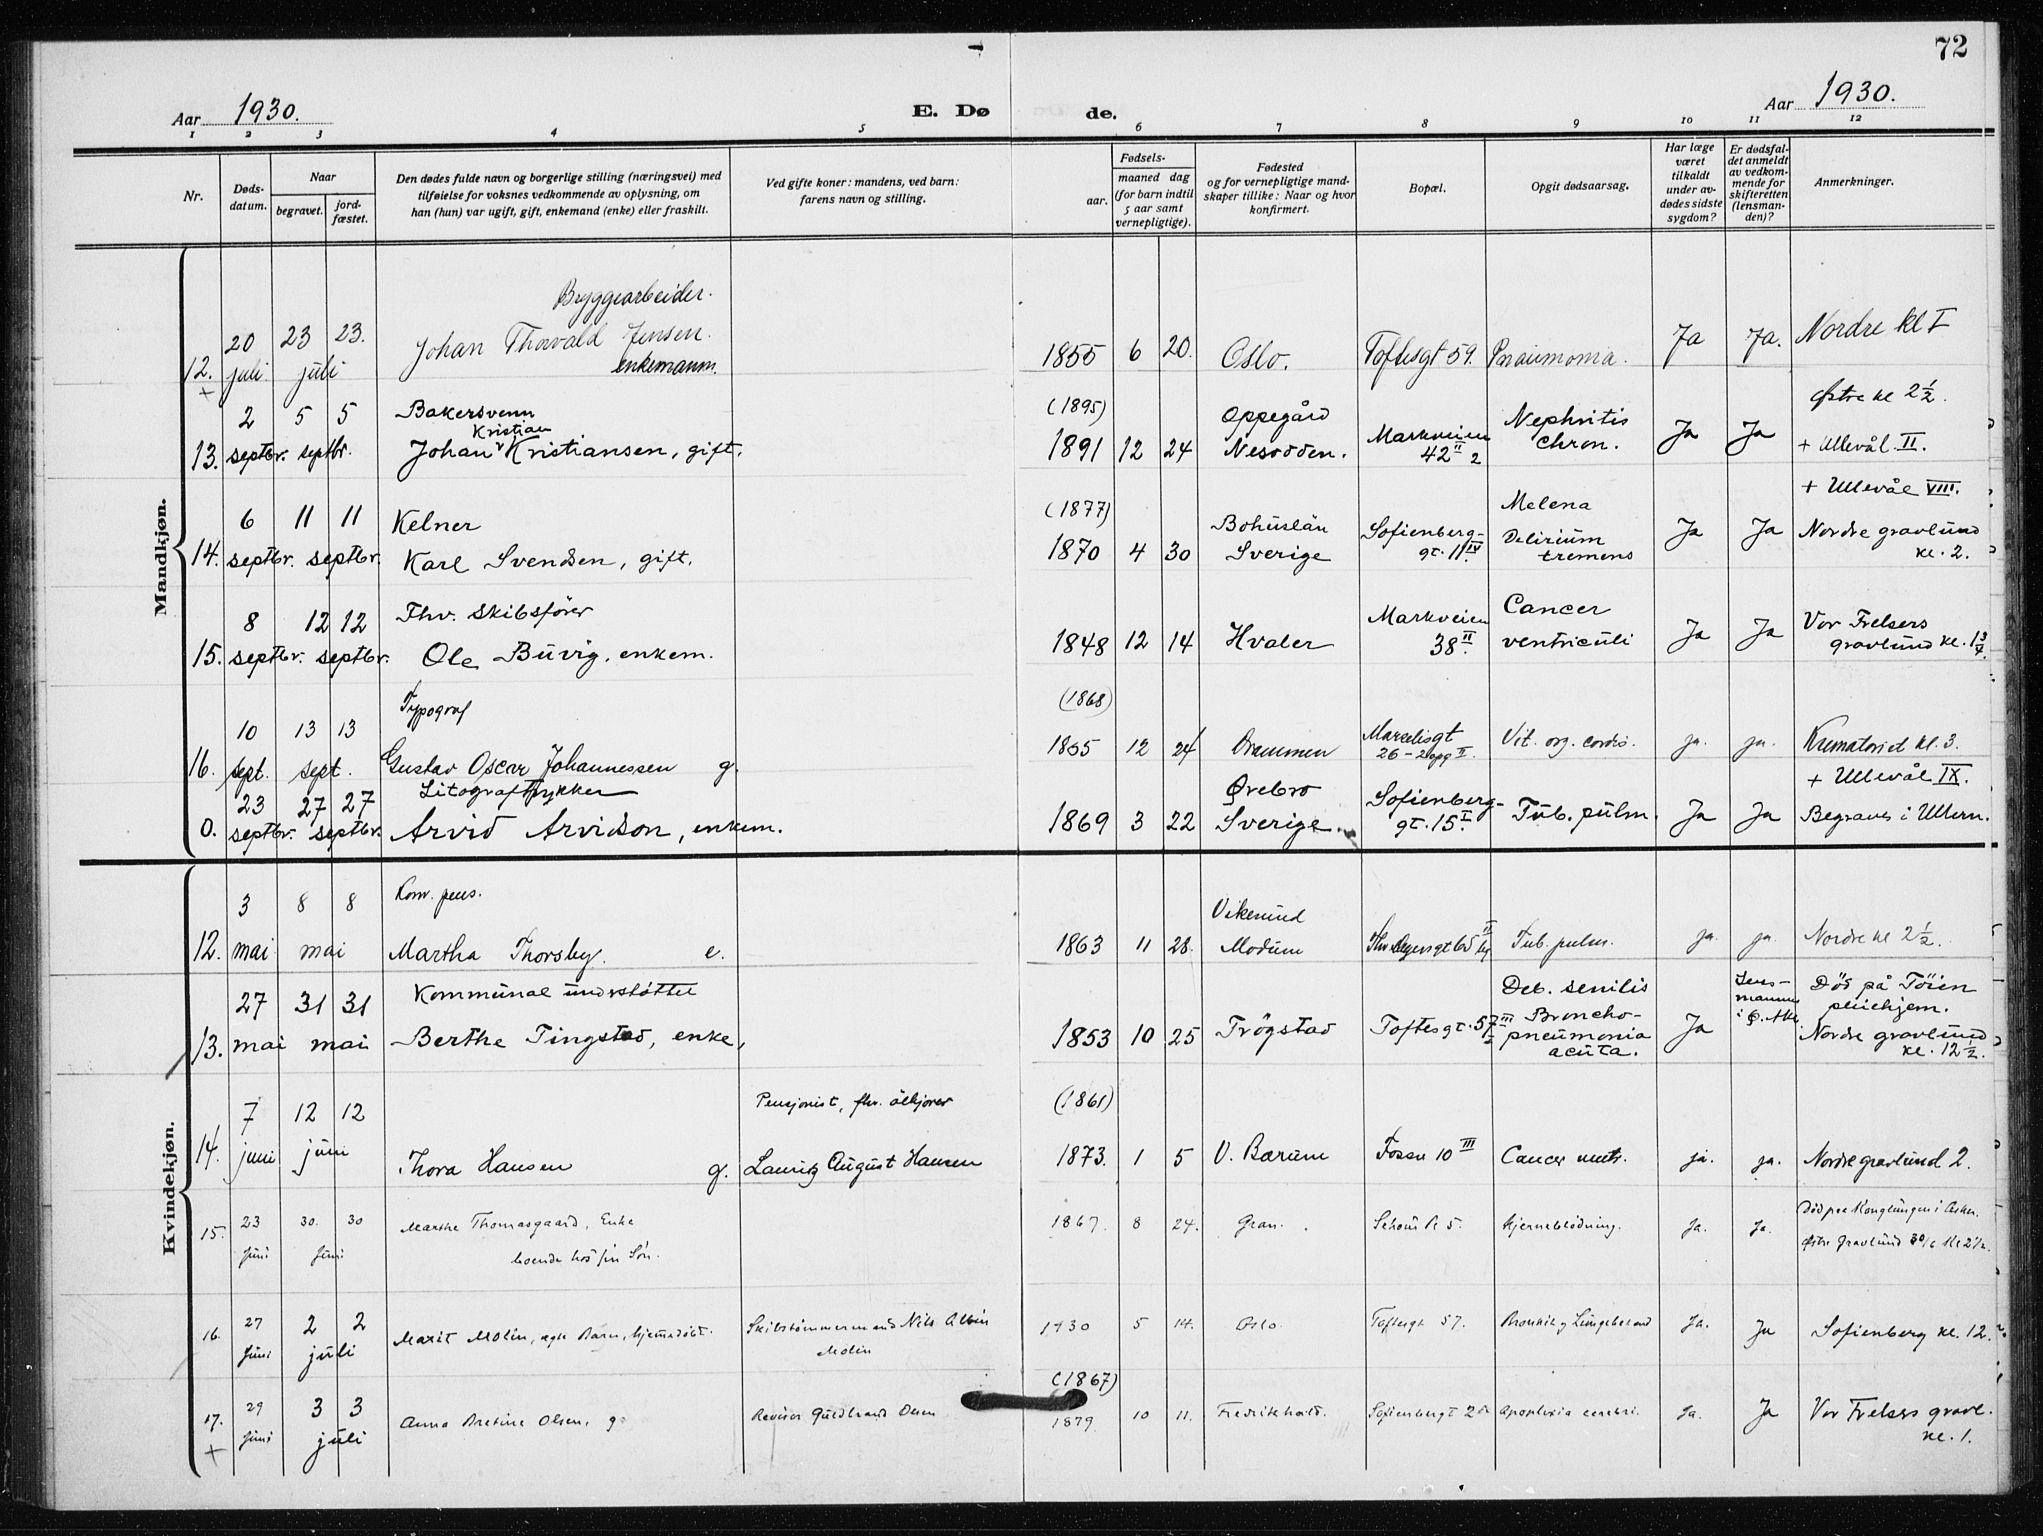 72
Aar 1930. E. Dø de. Aar 1930.
1 2 3 4 5 6 7 8 9 10 11 12
Nr.
Døds-
datum.
Naar
begravet.
jord-
fæstet.
Den dødes fulde navn og borgerlige stilling (næringsvei) med
tilføielse for voksnes vedkommende av oplysning, om
han (hun) var ugift, gift, enkemand (enke) eller fraskilt.
Ved gifte koner: mandens, ved barn:
farens navn og stilling.
Fødsels-
aar.
maaned dag
(for barn indtil
5 aar samt
vernepligtige).
Fødested
og for vernepligtige mand-
skaper tillike: Naar og hvor
konfirmert.
Bopæl.
Opgit dødsaarsag.
Har læge
været
tilkaldt
under av-
dødes sidste
sygdom?
Er dødsfal-
det anmeldt
av vedkom-
mende for
skifteretten
(lensman-
den)?
Anmerkninger.
Mandkjøn.
Bryggearbeider.
20 23 23. Johan Thorvald Jensen. 1855 6 20. Oslo. Toftesgt 59. Pnaiumonia. Ja Ja. Nordre kl I
12. juli juli enkemann.
+
2 5 5 Bakersvenn (1895) Oppegård Nephritis Østre kl 2½.
Kristian
13. septbr. septbr. Johan Kristiansen, gift. 1891 12 24 Nesodden. Markveien 42 II 2 chron. Ja Ja + Ullevål II.
6 11 11 Kelner (1877) Bohuslän Sofienberg- Melena + Ullevål VIII.
Delirium Ja Ja Nordre gravlund
14. septbr. septbr. Karl Svendsen, gift. 1870 4 30 Sverige gt. 11 IV tremens kl. 2.
8 12 12 Fhv. skibsfører Markveien Cancer Vor Frelsers
15. septbr. septbr. Ole Buvig, enkem. 1848 12 14 Hvaler 38 II. ventriculi Ja Ja gravlund kl. 1
10 13 13 Typograf (1868)
16. sept. sept. Gustav Oscar Johannessen g. 12 24 Drammen 26 - 2 opg II. Vit. org. cordis. ja. ja. Krematoriet kl. 3.
23 27 27 Litograftrykker Ørebro Sofienberg- + Ullevål IX.
0. septbr. septbr. Arvid Arvidson, enkem. 1869 3 22 Sverige. gt. 15 I. Tub. pulm. Ja Ja Begraves i Ullern.
Kvindekjøn.
3 8 8 Kom. pens. Vikesund
12. mai mai Martha Thorsby. e. 1863 11 28. Modum Tub. pulm. ja. ja. Nordre kl 2½.
27 31 31 Kommunal understøttet Deb. senilis Lens- Død på Tøien
Broncho- mannen pleiehjem.
13. mai mai Berthe Tingstad, enke, 1853 10 25 Trøgstad Toftesgt. 57 III pneumonia Ja i Ø. Aker Nordre gravlund
acuta. kl. 12½.
7 12 12 Pensjonist, fhv. ølkjører (1861)
14. juni juni Thora Hansen g. Lauritz August Hansen 1873. 1 5 V. Bærum Fossv 10 III Cancer ventr. ja. ja. Nordre gravlund 2.
23 30. 30 Marthe Thomasgaard, Enke Død paa Konglungen i Asker.
15. Juni Juni boende hos sin Søn. 1867. 8 24. Gran. Schous Pl 5. Hjerneblødning. Ja. Ja. Østre Gravlund 30/6 Kl 2½.
27 2 2 Skibstømmermand Nils Albin
16. Juni juli Marit Molin, ægte Barn, hjemmedøbt. Molin 1930 5 14. Oslo. Toftesgt 57. Ja. Ja Sofienberg kl. 12.
29 3 3 (1867)
17. Juni juli Anna Bretine Olsen, g. Revisor Guldbrand Olsen 1879. 10 11. Fredrikshald. Sofienbergt 2 Apoplexia cerebri. Ja. Ja Vor Frelsers gravl.
+ kl. 1.